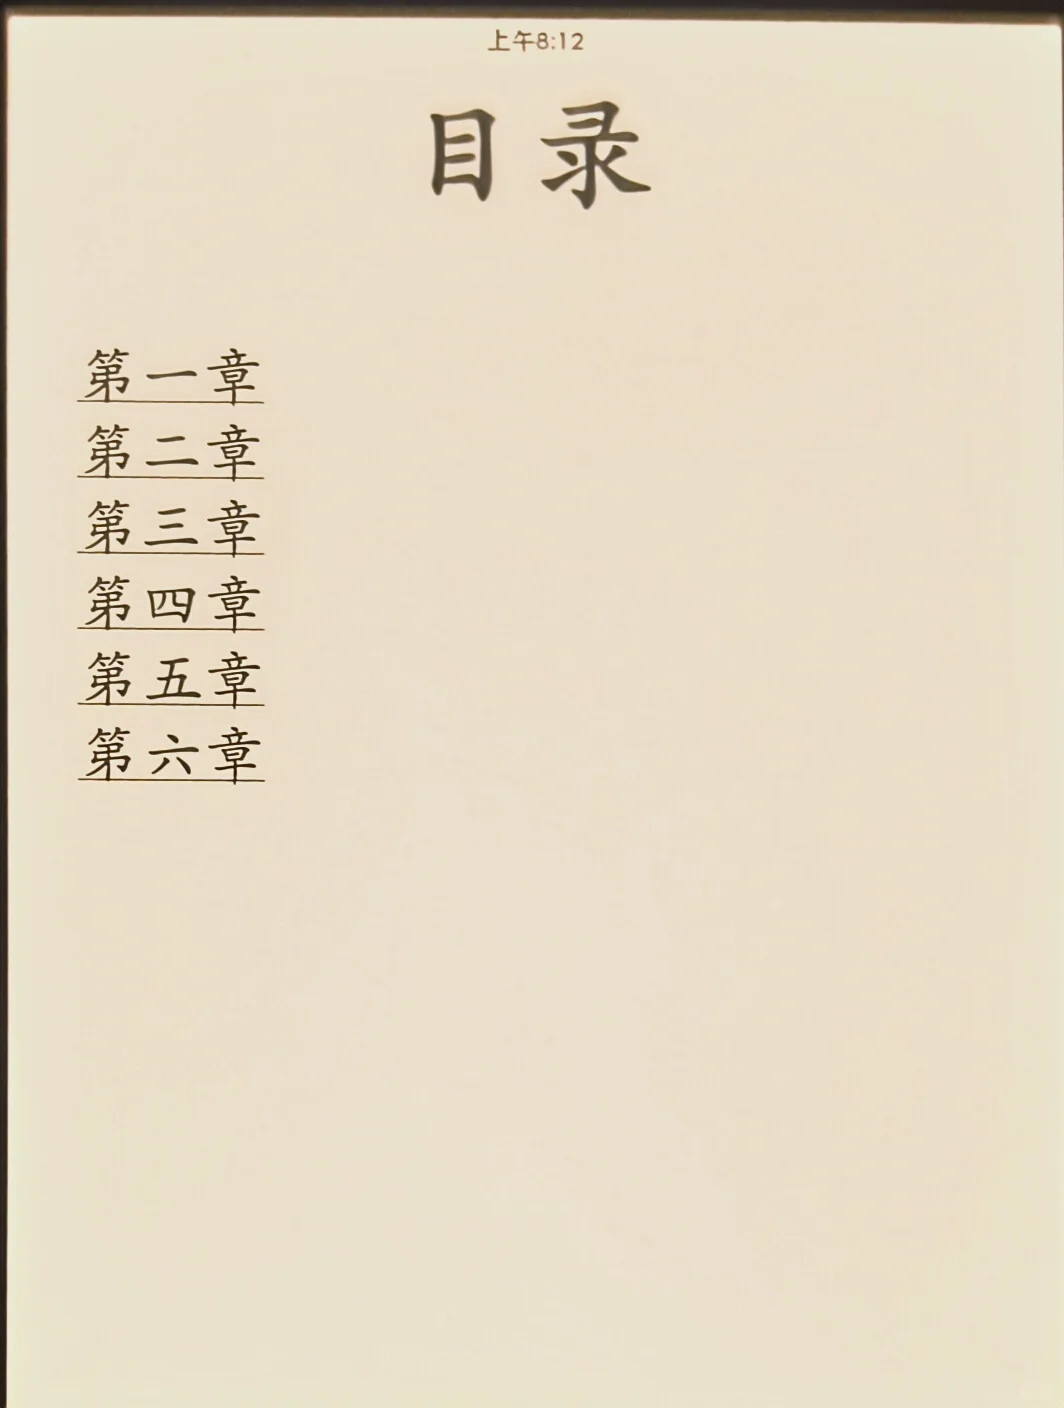 上午8:12
目录
第一章
第二章
第三章
第四章
第五章
第六章